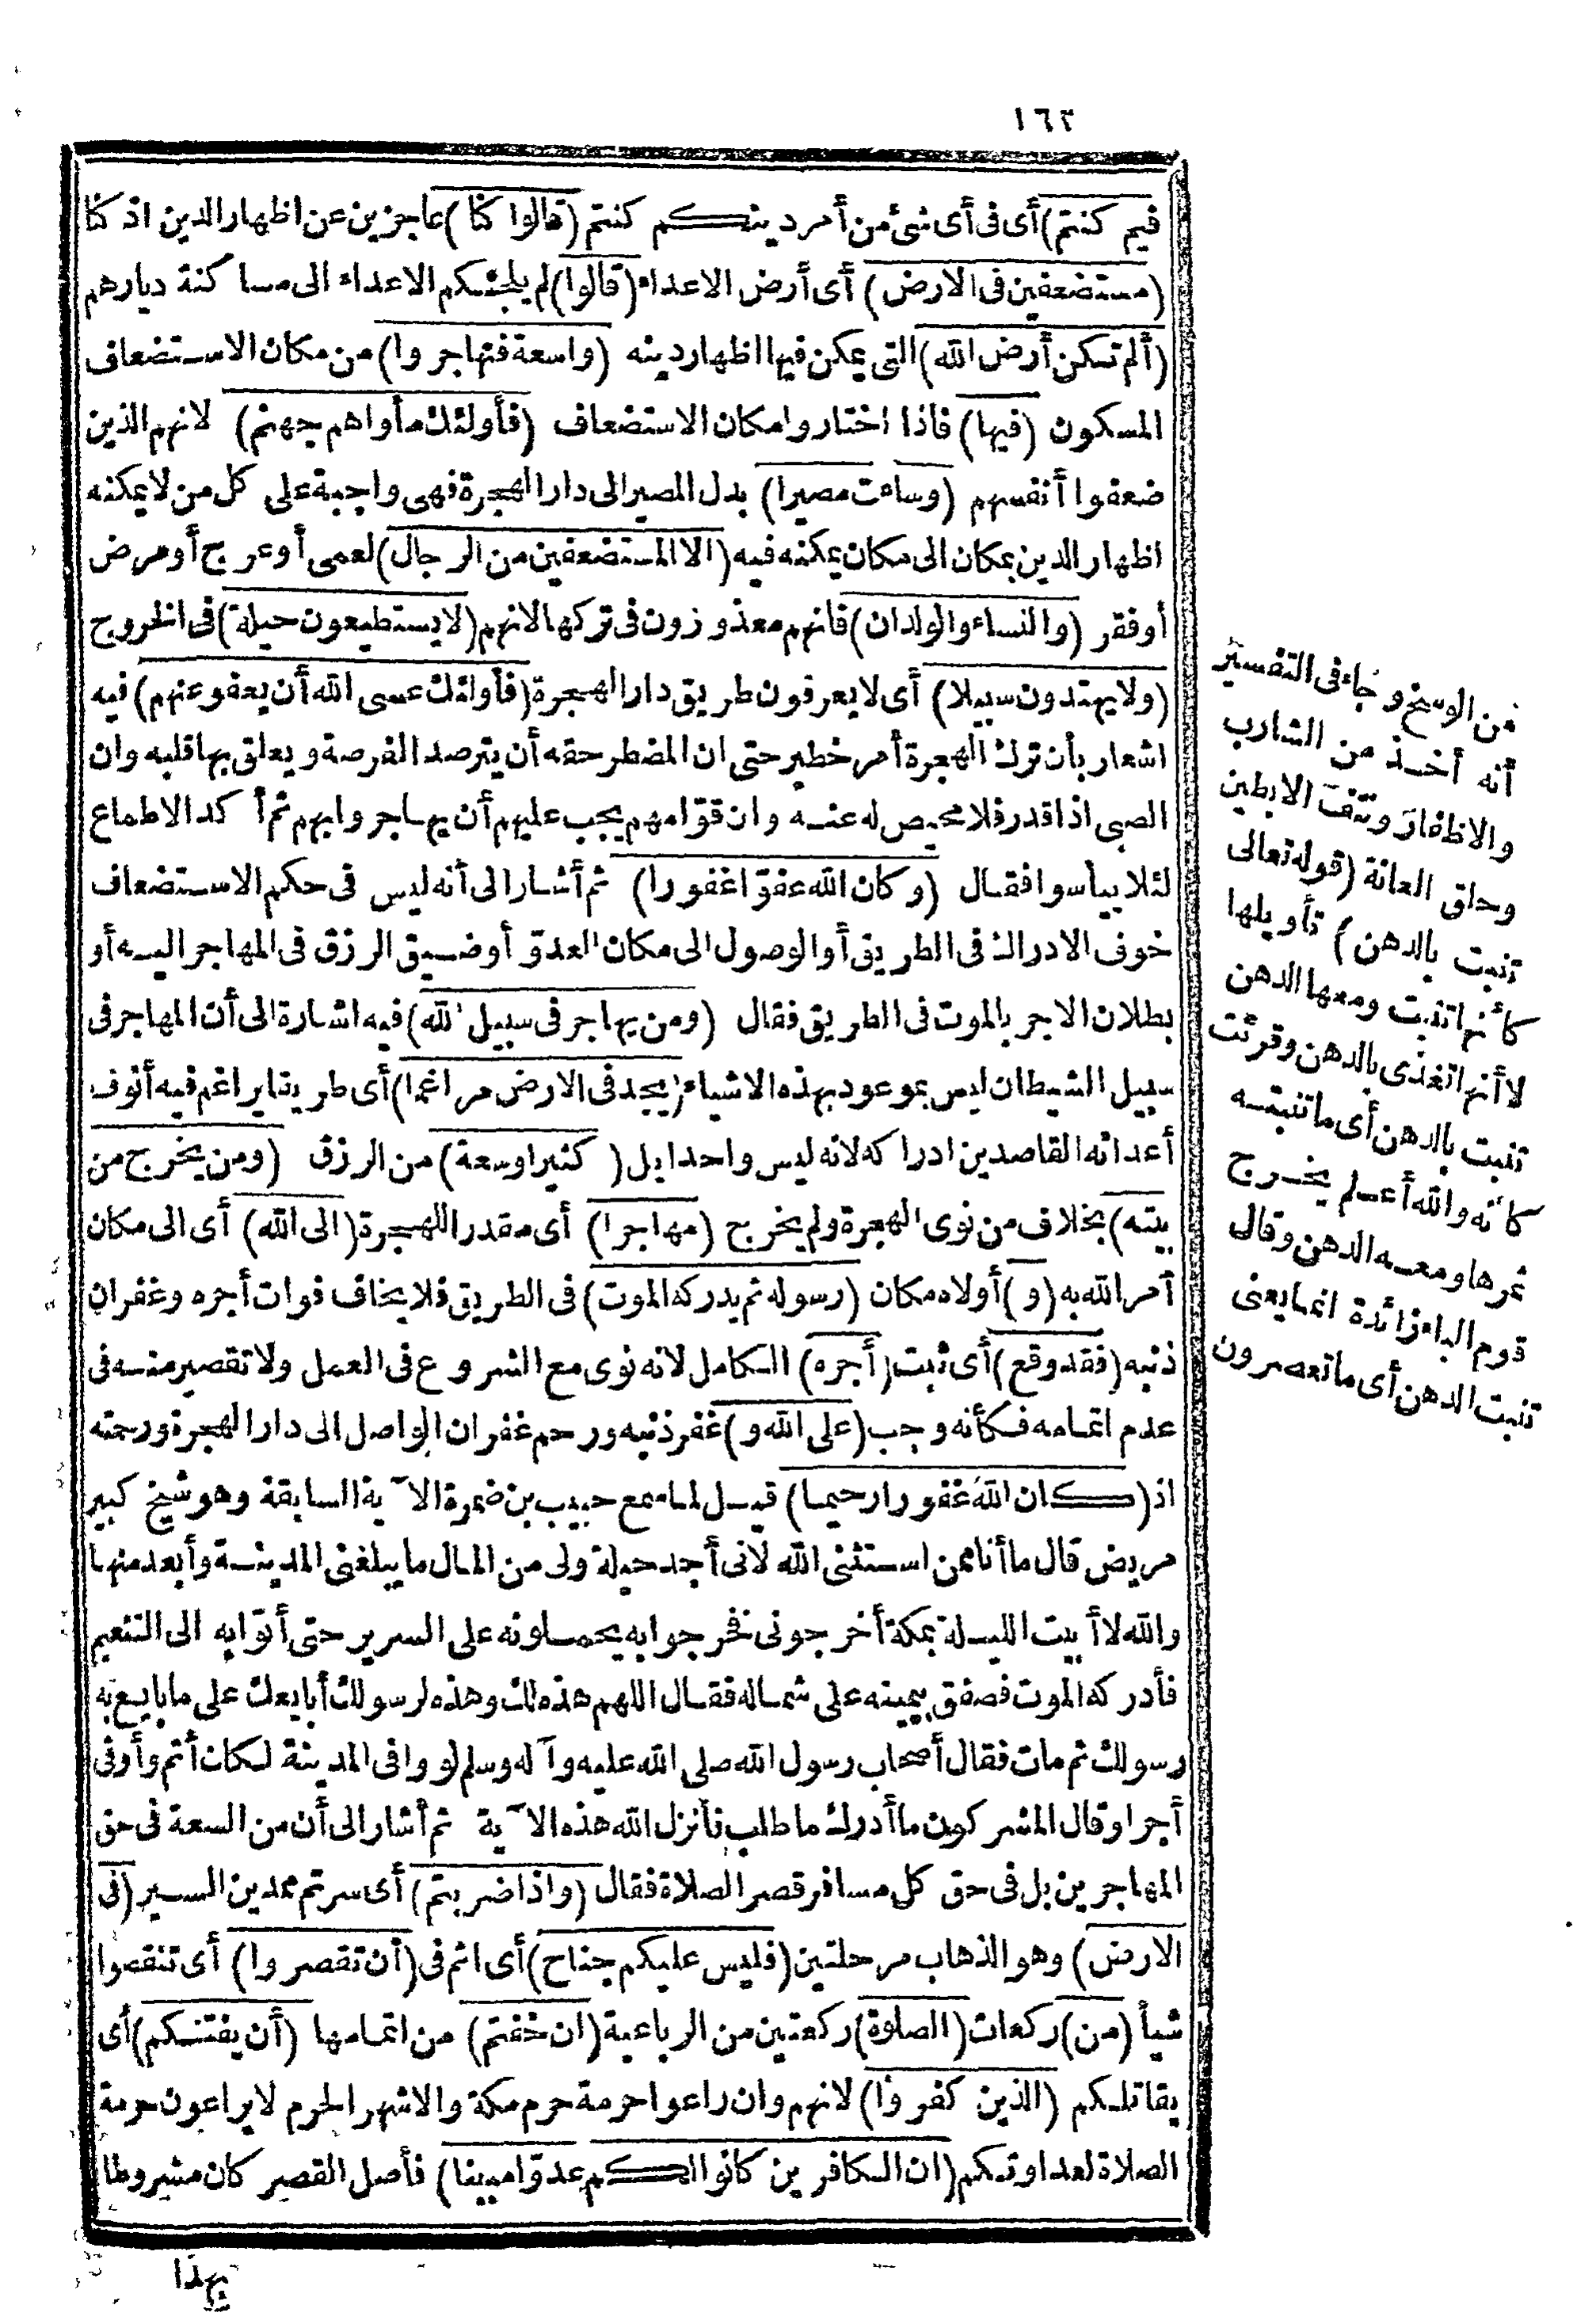 ١٦٢
فيم كنتم) أى فى أى شئ من أمر دينكم كنتم (قالوا كنا) عاجزين عن اظهار الدين اذ كنا
(مستضعفين فى الارض) أى أرض الاعداء (قالوا) لم يلجئكم الاعداء الى مساكنة ديارهم
(ألم تكن أرض الله) التى يمكن فيها اظهار دينه (واسعة فتهاجروا) من مكان الاستضعاف
المسكون (فيها) فاذا اختاروا مكان الاستضعاف (فأولئك مأواهم جهنم) لانهم الذين
ضعفوا أنفسهم (وساءت مصيرا) بدل المصير الى دار الهجرة فهى واجبة على كل من لا يمكنه
اظهار الدين بمكان الى مكان يمكنه فيه (الا المستضعفين من الرجال) لعمى أو عرج أو مرض
أو فقر (والنساء والولدان) فانهم معذورون فى تركها لانهم (لا يستطيعون حيلة) فى الخروج
(ولا يهتدون سبيلا) أى لا يعرفون طريق دار الهجرة (فأولئك عسى الله أن يعفو عنهم) فيه
اشعار بأن ترك الهجرة أمر خطير حتى ان المضطر حقه أن يترصد الفرصة و يعلق بها قلبه وان
الصبى اذا قدر فلا محيص له عنه وان قوّامهم يجب عليهم أن يهاجروا بهم ثم أكد الاطماع
لئلا ييأسوا فقال (وكان الله عفوّا غفورا) ثم أشار الى أنه ليس فى حكم الاستضعاف
خوف الادراك فى الطريق أو الوصول الى مكان العدوّ أو ضيق الرزق فى المهاجر اليه أو
بطلان الاجر بالموت فى الطريق فقال (ومن يهاجر فى سبيل الله) فيه اشارة الى أن المهاجر فى
سبيل الشيطان ليس بموعود بهذه الاشياء (يجد فى الارض مراغما) أى طريقا يراغم فيه أنوف
أعدائه القاصدين ادراكه لانه ليس واحدا بل (كثيرا وسعة) من الرزق (ومن يخرج من
بيته) بخلاف من نوى الهجرة ولم يخرج (مهاجرا) أى مقدرا للهجرة (الى الله) أى الى مكان
أمر الله به (و) أولاه مكان (رسوله ثم يدركه الموت) فى الطريق فلا يخاف فوات أجره وغفران
ذنبه (فقد وقع) أى ثبت (أجره) الكامل لانه نوى مع الشروع فى العمل ولا تقصير منه فى
عدم اتمامه فكأنه وجب (على الله و) غفر ذنبه ورحم غفران الواصل الى دار الهجرة ورحمته
اذ (كان الله غفورا رحيما) قيل لما سمع حبيب بن ضمرة الآية السابقة وهو شيخ كبير
مريض قال ما أنا ممن استثنى الله لانى أجد حيلة ولى من المال ما يبلغنى المدينة وأبعد منها
والله لا أبيت الليلة بمكة أخرجونى فخرجوا به يحملونه على السرير حتى أتوا به الى التنعيم
فأدركه الموت فصفق بيمينه على شماله فقال اللهم هذه لك وهذه لرسولك أبايعك على ما بايع به
رسولك ثم مات فقال أصحاب رسول الله صلى الله عليه وآله وسلم لو وافى المدينة لكان أتم وأوفى
أجرا وقال المشركون ما أدرك ما طلب فأنزل الله هذه الآية ثم أشار الى أن من السعة فى حق
المهاجرين بل فى حق كل مسافر قصر الصلاة فقال (واذا ضربتم) أى سرتم ممدين السير (فى
الارض) وهو الذهاب مرحلتين (فليس عليكم جناح) أى اثم فى (أن تقصروا) أى تنقصوا
شيأ (من) ركعات (الصلوة) ركعتين من الرباعية (ان خفتم) من اتمامها (أن يفتنكم) أى
يقاتلكم (الذين كفروا) لانهم وان راعوا حرمة حرم مكة والاشهر الحرم لا يراعون حرمة
الصلاة لعداوتكم (ان الكافرين كانوا لكم عدوّا مبينا) فأصل القصر كان مشروطا
بهذا
من الوسخ وجاء فى التفسير
أنه أخذ من الشارب
والاظفار ونتف الابطين
وحلق العانة (قوله تعالى
تنبت بالدهن) تأويلها
كأنها تنبت ومعها الدهن
لا أنها تغذى بالدهن وقرئت
تنبت بالدهن أى ما تنبته
كأنه والله أعلم يخرج
ثمرها ومعه الدهن وقال
قوم الباء زائدة انما يعنى
تنبت الدهن أى ما تعصرون